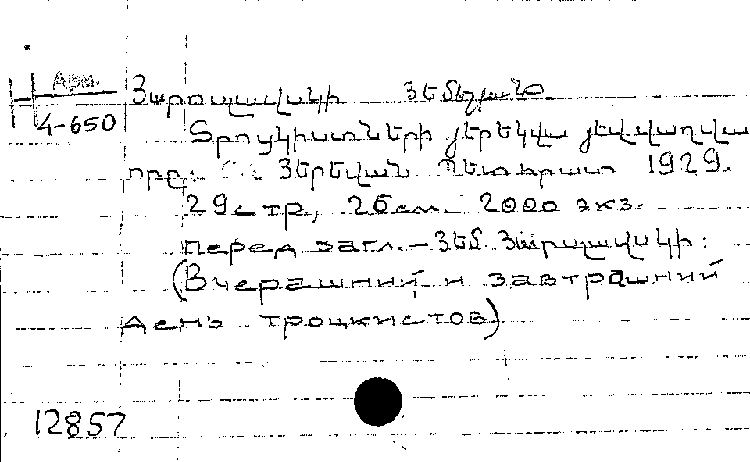 Арм.
4-650
Յարոսլավսկի Յեմելյան
Տրոցկիստների յերեկվա յեվ վաղվա
որը. Յերեվան Պետհրատ 1929.
29 стр, 26 см. 2000 экз.
перед загл. - Յեմ. Յարոսլավսկի:
(Вчерашний и завтрашний
день троцкистов)
12857